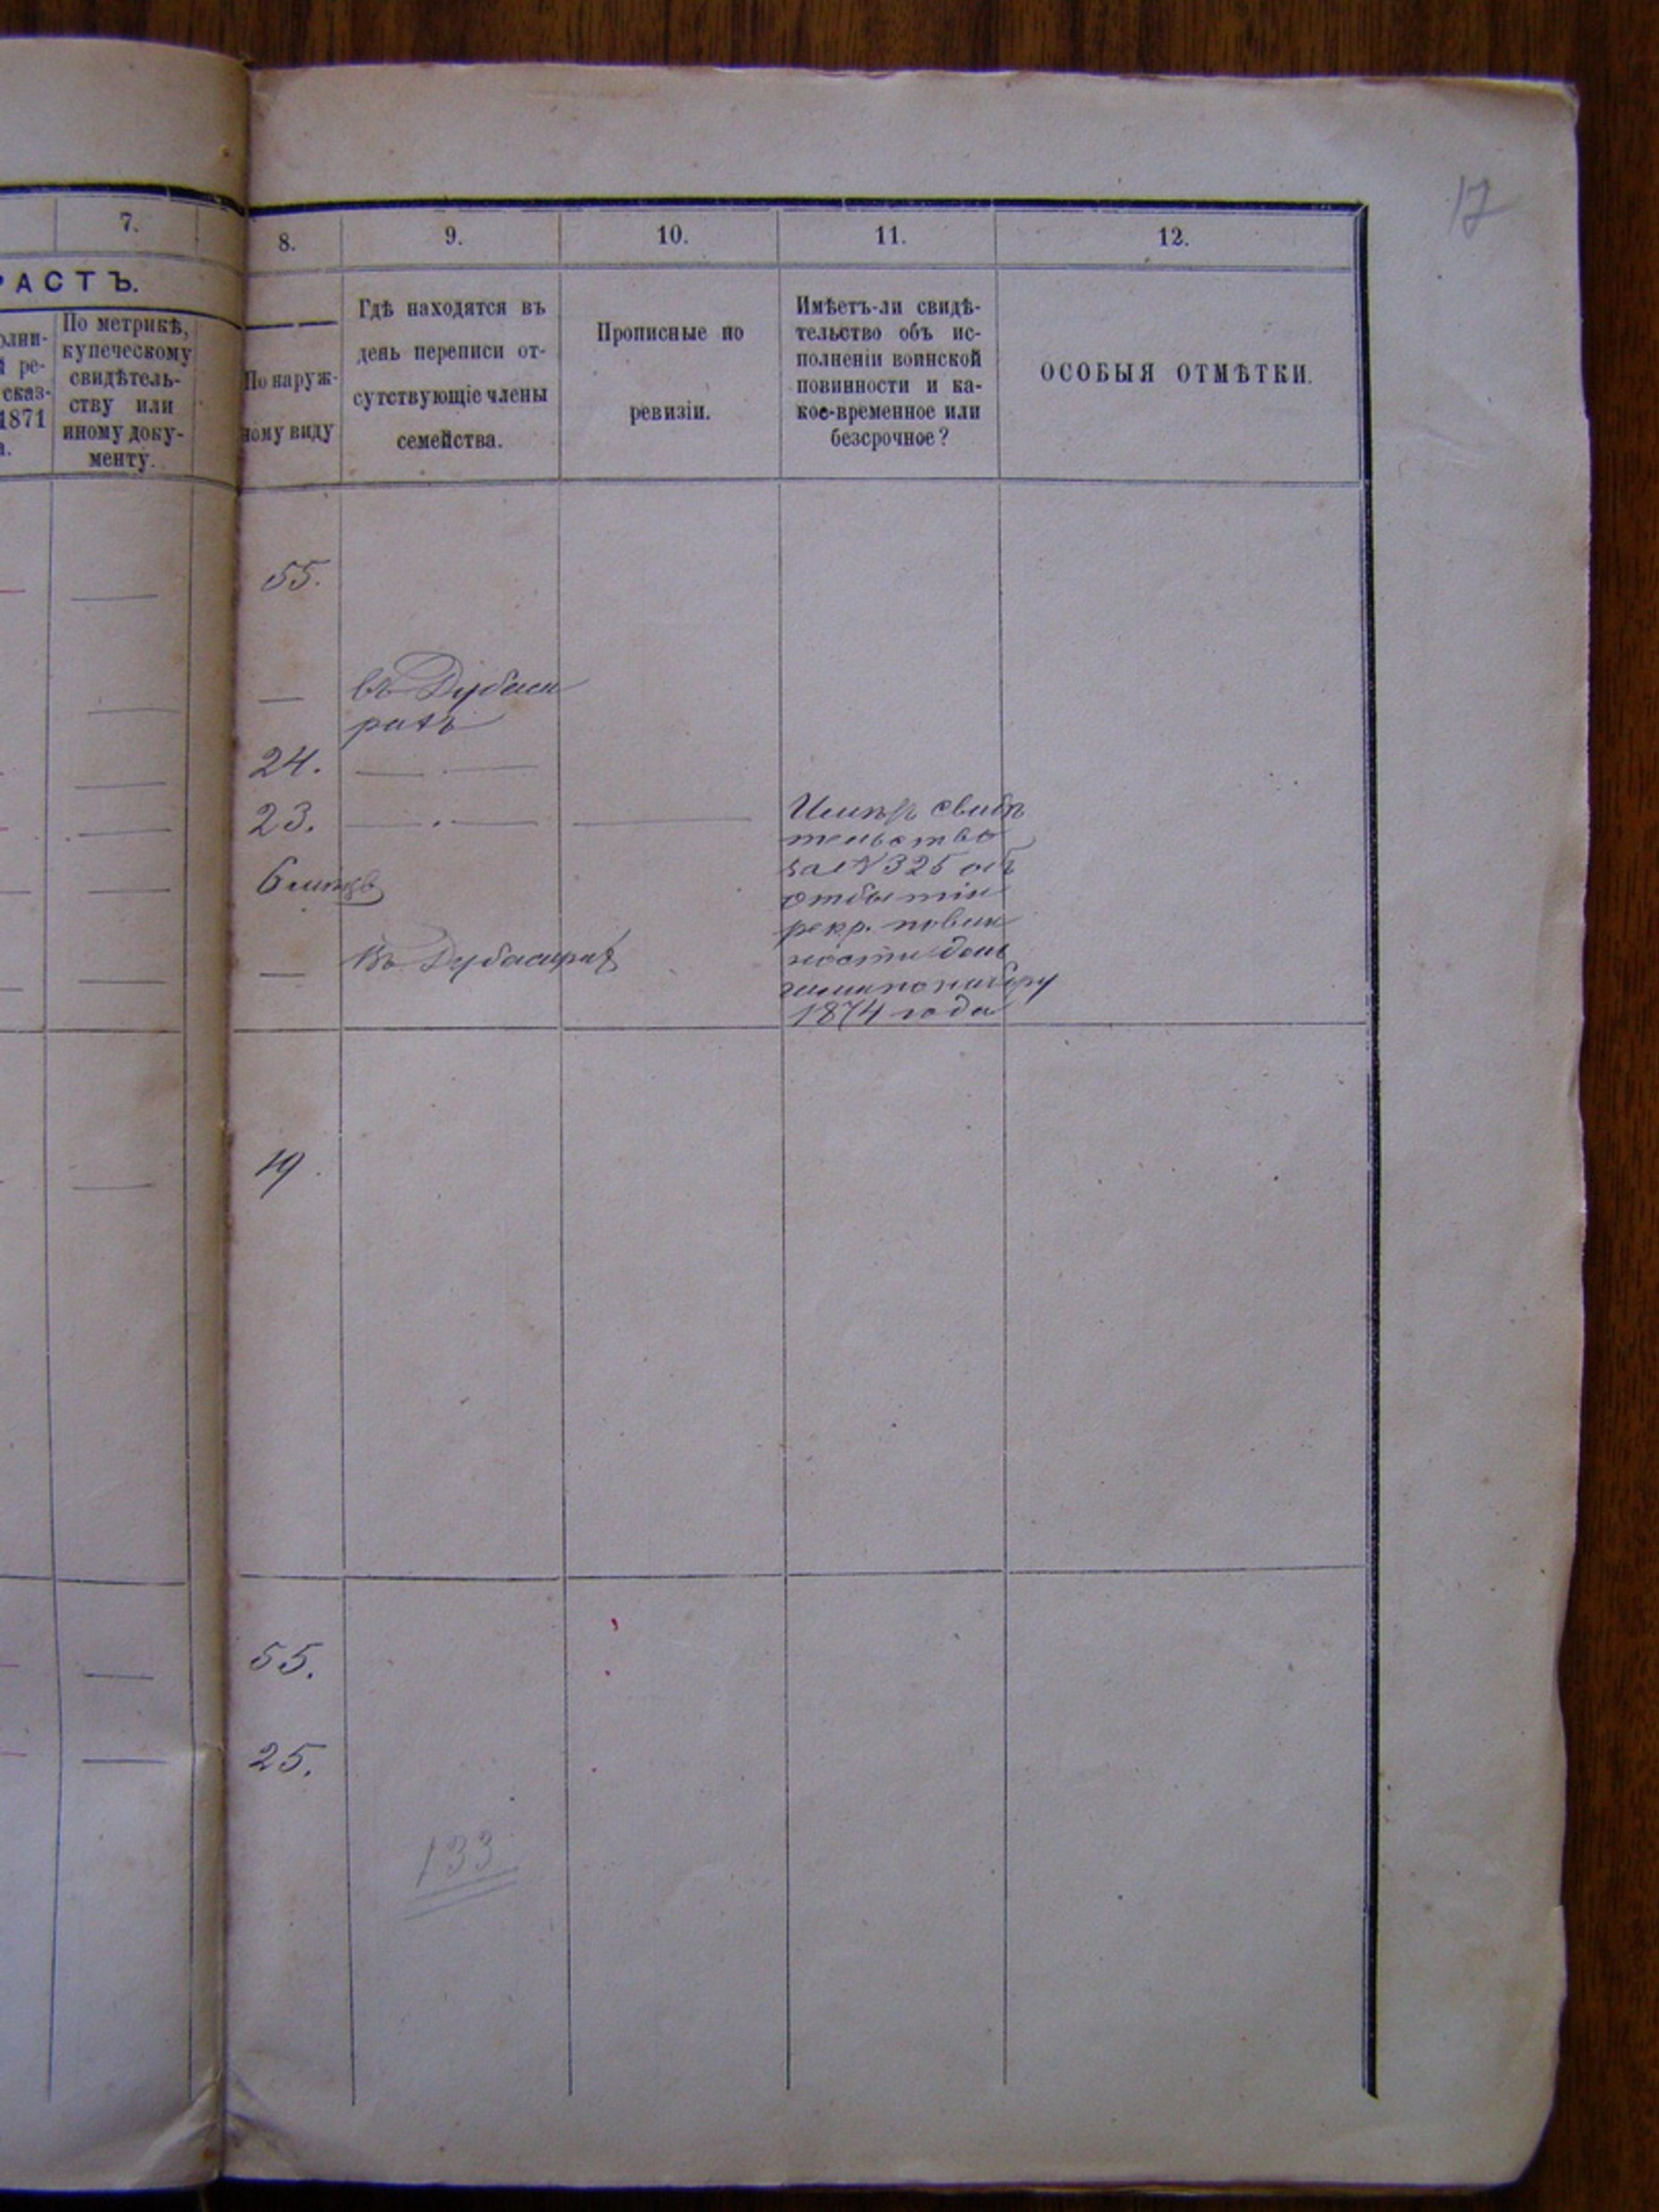 17
7.
8.
9.
10.
11.
12.
РАСТЪ.
олни-
й ре-
сказ-
1871
а.
По метрикѣ,
купеческому
свидѣтель-
ству или
иному доку-
менту.
По наруж-
ному виду
Гдѣ находятся въ
день переписи от-
сутствующіе члены
семейства.
Прописные по
ревизіи.
Имѣетъ-ли свидѣ-
тельство объ ис-
полненіи воинской
повинности и ка-
кое-временное или
безсрочное?
ОСОБЫЯ ОТМѢТКИ.
55.
— въ Дубаси
рахъ
24. — . —
23. — . — —
6 мѣсяцъ
— Въ Дубасарах
свидѣ
тельство
за № 325 объ
отбытіи
рекр. повин
ности
по набору
1874 года
19.
55.
25.
133